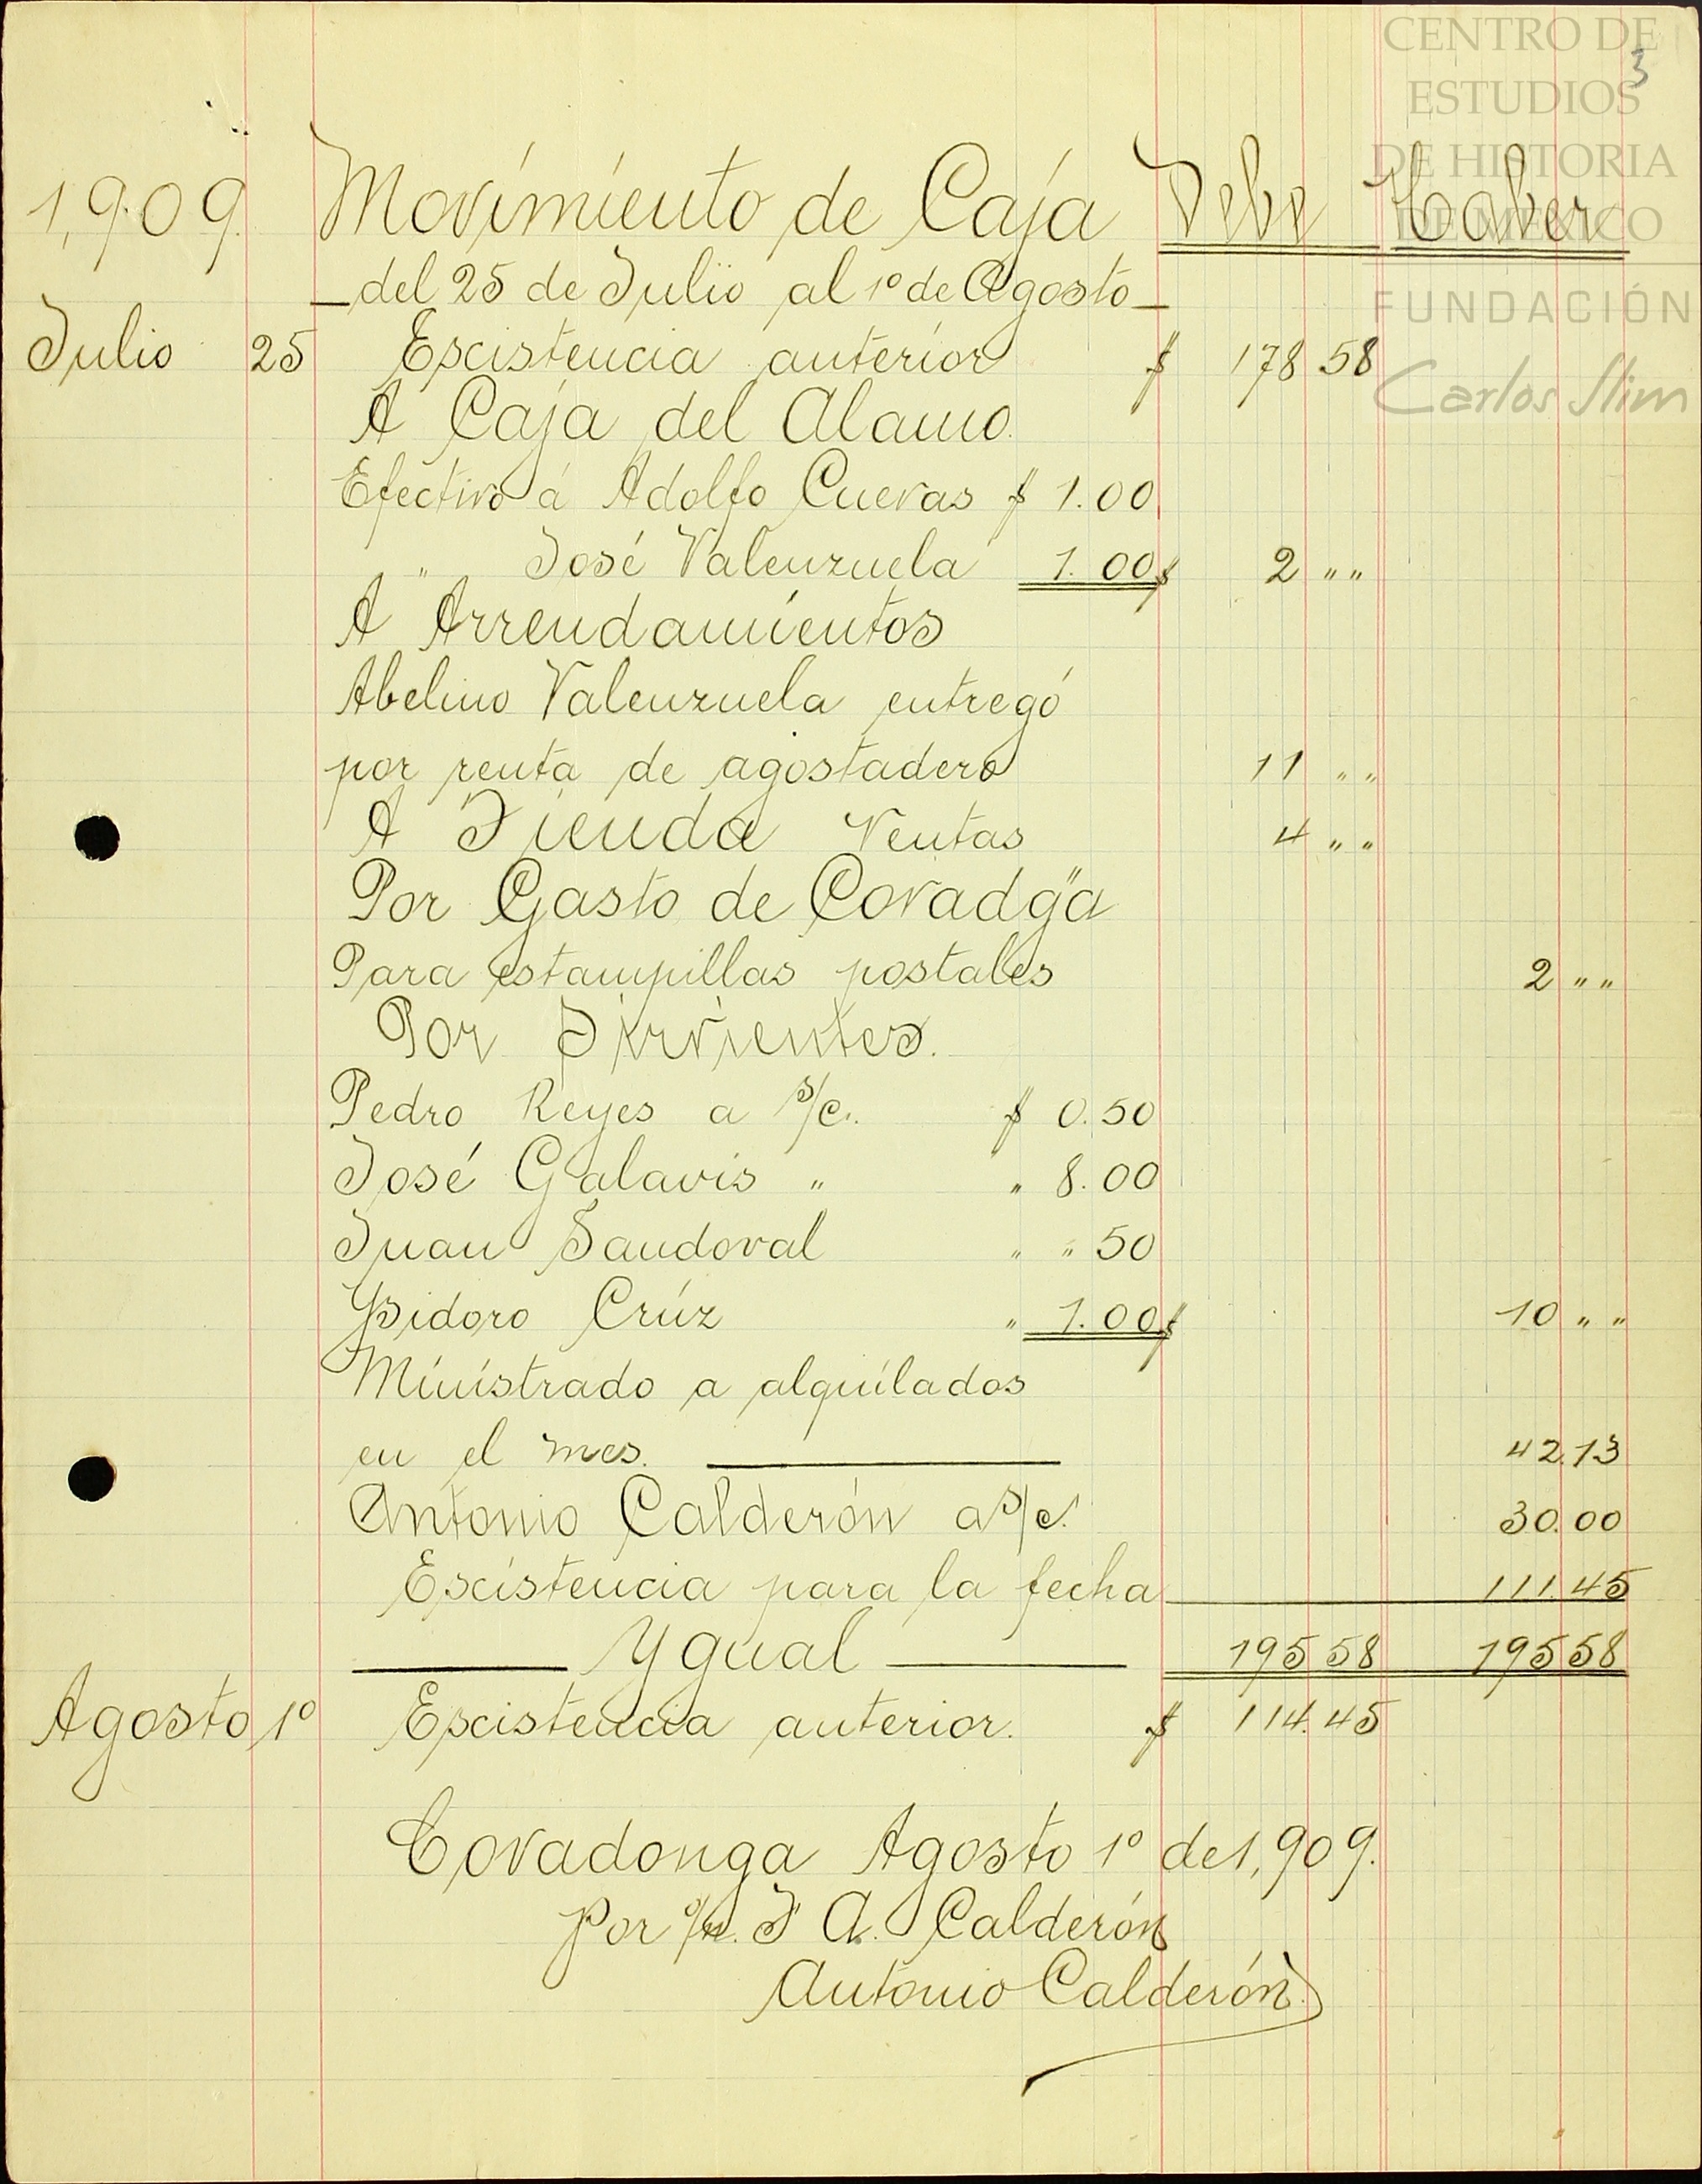 CENTRO DE
ESTUDIOS
DE HISTORIA
DE MÉXICO
FUNDACIÓN
Carlos Slim
3
1,909. Movimiento de Caja Debe Haber
del 25 de Julio al 1º de Agosto
Julio 25 Escistencia anterior $ 178 58
A Caja del Alamo.
Efectivo á Adolfo Cuevas $ 1.00
" José Valenzuela 1.00 $ 2 " "
A Arrendamientos
Abelino Valenzuela entregó
por renta de agostadero 11 " "
A Tienda Ventas 4 " "
Por Gasto de Covadgª
Para estampillas postales 2 " "
Por Sirvientes.
Pedro Reyes a s/c. $ 0.50
José Galavis " " 8.00
Juan Sandoval " " 50
Ysidoro Crúz " 1.00 $ 10 " "
Ministrado a alquilados
en el mes. 42.13
Antonio Calderón a s/c. 30.00
Escistencia para la fecha 111 45
Ygual 195 58 195 58
Agosto 1º Escistencia anterior. $ 114.45
Covadonga Agosto 1º de 1,909.
Por o/n. J A. Calderón
Antonio Calderón